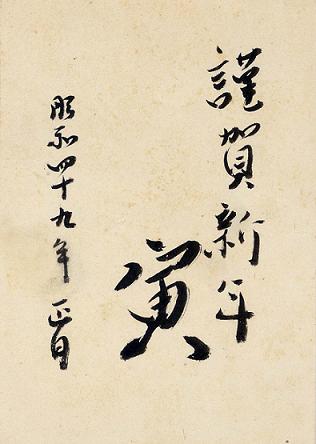 謹賀新年
寅
昭和四十九年 正月